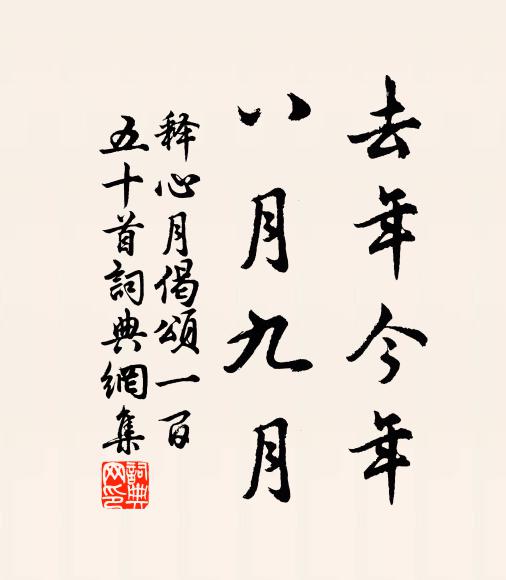 去年今年
八月九月
释心月偈頌一百
五十首詞典網集
詞典
网印